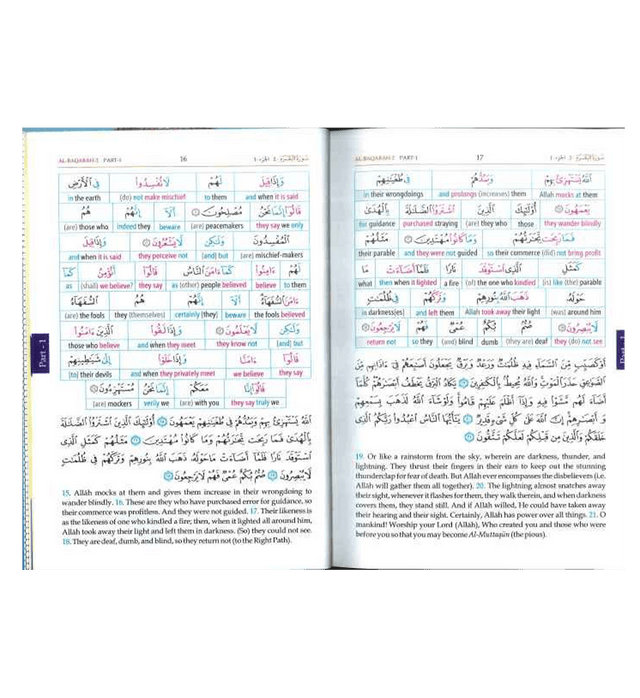 AL-BAQARAH-2 PART-1 16 سورة البقرة-٢ الجزء-١
وَإِذَا قِيلَ لَهُمْ لَا تُفْسِدُوا فِي الْأَرْضِ
in the earth (do) not make mischief to them and when it is said
قَالُوا إِنَّمَا نَحْنُ مُصْلِحُونَ أَلَا إِنَّهُمْ هُمُ
(are) those who indeed they beware (are) peacemakers they say we only
الْمُفْسِدُونَ وَلَٰكِن لَّا يَشْعُرُونَ وَإِذَا قِيلَ
and when it is said they perceive not [and] but (are) mischief-makers
لَهُمْ آمِنُوا كَمَا آمَنَ النَّاسُ قَالُوا أَنُؤْمِنُ كَمَا
as (shall) we believe? they say as (other) people believed believe to them
آمَنَ السُّفَهَاءُ أَلَا إِنَّهُمْ هُمُ السُّفَهَاءُ
(are) the fools they (themselves) certainly [they] beware the fools believed
وَلَٰكِن لَّا يَعْلَمُونَ وَإِذَا لَقُوا الَّذِينَ آمَنُوا
those who believe and when they meet they know not [and] but
قَالُوا آمَنَّا وَإِذَا خَلَوْا إِلَىٰ شَيَاطِينِهِمْ
[to] their devils and when they privately meet we believe they say
قَالُوا إِنَّا مَعَكُمْ إِنَّمَا نَحْنُ مُسْتَهْزِئُونَ
(are) mockers verily we (are) with you they say truly we
اللَّهُ يَسْتَهْزِئُ بِهِمْ وَيَمُدُّهُمْ فِي طُغْيَانِهِمْ يَعْمَهُونَ أُولَٰئِكَ الَّذِينَ اشْتَرَوُا الضَّلَالَةَ
بِالْهُدَىٰ فَمَا رَبِحَت تِّجَارَتُهُمْ وَمَا كَانُوا مُهْتَدِينَ مَثَلُهُمْ كَمَثَلِ الَّذِي
اسْتَوْقَدَ نَارًا فَلَمَّا أَضَاءَتْ مَا حَوْلَهُ ذَهَبَ اللَّهُ بِنُورِهِمْ وَتَرَكَهُمْ فِي ظُلُمَاتٍ
لَّا يُبْصِرُونَ صُمٌّ بُكْمٌ عُمْيٌ فَهُمْ لَا يَرْجِعُونَ
15. Allâh mocks at them and gives them increase in their wrongdoing to
wander blindly. 16. These are they who have purchased error for guidance, so
their commerce was profitless. And they were not guided. 17. Their likeness is
as the likeness of one who kindled a fire; then, when it lighted all around him,
Allâh took away their light and left them in darkness. (So) they could not see.
18. They are deaf, dumb, and blind, so they return not (to the Right Path).
Part - 1
AL-BAQARAH-2 PART-1 17 سورة البقرة-٢ الجزء-١
اللَّهُ يَسْتَهْزِئُ بِهِمْ وَيَمُدُّهُمْ فِي طُغْيَانِهِمْ
in their wrongdoings and prolongs (increases) them Allah mocks at them
يَعْمَهُونَ أُولَٰئِكَ الَّذِينَ اشْتَرَوُا الضَّلَالَةَ بِالْهُدَىٰ
for guidance purchased straying (are) they who those they wander blindly
فَمَا رَبِحَت تِّجَارَتُهُمْ وَمَا كَانُوا مُهْتَدِينَ مَثَلُهُمْ
their parable and they were not guided so their commerce (did) not bring profit
كَمَثَلِ الَّذِي اسْتَوْقَدَ نَارًا فَلَمَّا أَضَاءَتْ مَا
what then when it lighted a fire (of) the one who kindled (is) like (the) parable
حَوْلَهُ ذَهَبَ اللَّهُ بِنُورِهِمْ وَتَرَكَهُمْ فِي ظُلُمَاتٍ
in darkness(es) and left them Allah took away their light (was) around him
لَّا يُبْصِرُونَ صُمٌّ بُكْمٌ عُمْيٌ فَهُمْ لَا يَرْجِعُونَ
return not so they (and) blind dumb (they are) deaf they (do) not see
أَوْ كَصَيِّبٍ مِّنَ السَّمَاءِ فِيهِ ظُلُمَاتٌ وَرَعْدٌ وَبَرْقٌ يَجْعَلُونَ أَصَابِعَهُمْ فِي آذَانِهِم مِّنَ
الصَّوَاعِقِ حَذَرَ الْمَوْتِ وَاللَّهُ مُحِيطٌ بِالْكَافِرِينَ يَكَادُ الْبَرْقُ يَخْطَفُ أَبْصَارَهُمْ كُلَّمَا
أَضَاءَ لَهُم مَّشَوْا فِيهِ وَإِذَا أَظْلَمَ عَلَيْهِمْ قَامُوا وَلَوْ شَاءَ اللَّهُ لَذَهَبَ بِسَمْعِهِمْ
وَأَبْصَارِهِمْ إِنَّ اللَّهَ عَلَىٰ كُلِّ شَيْءٍ قَدِيرٌ يَا أَيُّهَا النَّاسُ اعْبُدُوا رَبَّكُمُ الَّذِي
خَلَقَكُمْ وَالَّذِينَ مِن قَبْلِكُمْ لَعَلَّكُمْ تَتَّقُونَ
19. Or like a rainstorm from the sky, wherein are darkness, thunder, and
lightning. They thrust their fingers in their ears to keep out the stunning
thunderclap for fear of death. But Allah ever encompasses the disbelievers (i.e.
Allah will gather them all together). 20. The lightning almost snatches away
their sight, whenever it flashes for them, they walk therein, and when darkness
covers them, they stand still. And if Allah willed, He could have taken away
their hearing and their sight. Certainly, Allah has power over all things. 21. O
mankind! Worship your Lord (Allah), Who created you and those who were
before you so that you may become Al-Muttaqûn (the pious).
Part - 1